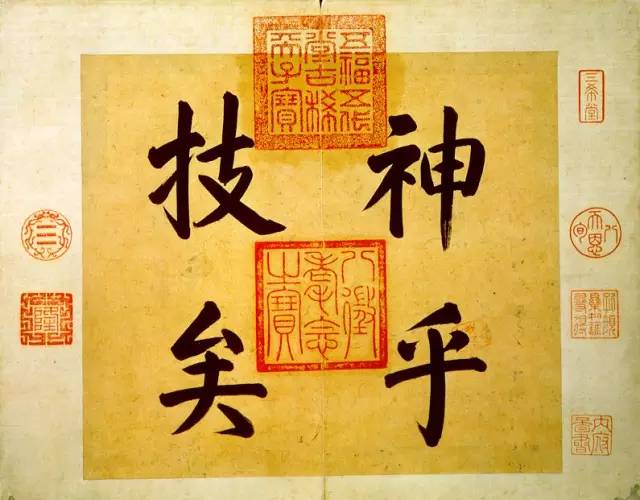 神乎
技矣
五福五代
堂古稀
天子寶
八徵
耄念
之寶
三希堂
天恩八旬
隆